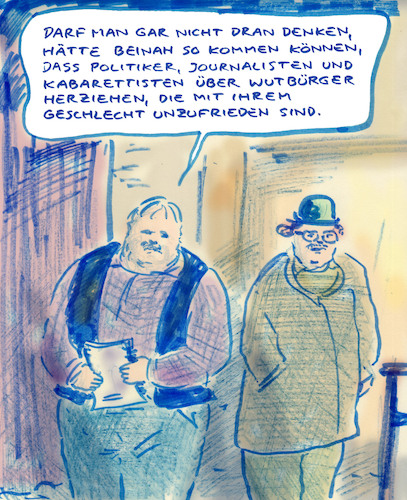 DARF MAN GAR NICHT DRAN DENKEN,
HÄTTE BEINAH SO KOMMEN KÖNNEN,
DASS POLITIKER, JOURNALISTEN UND
KABARETTISTEN ÜBER WUTBÜRGER
HERZIEHEN, DIE MIT IHREM
GESCHLECHT UNZUFRIEDEN SIND.